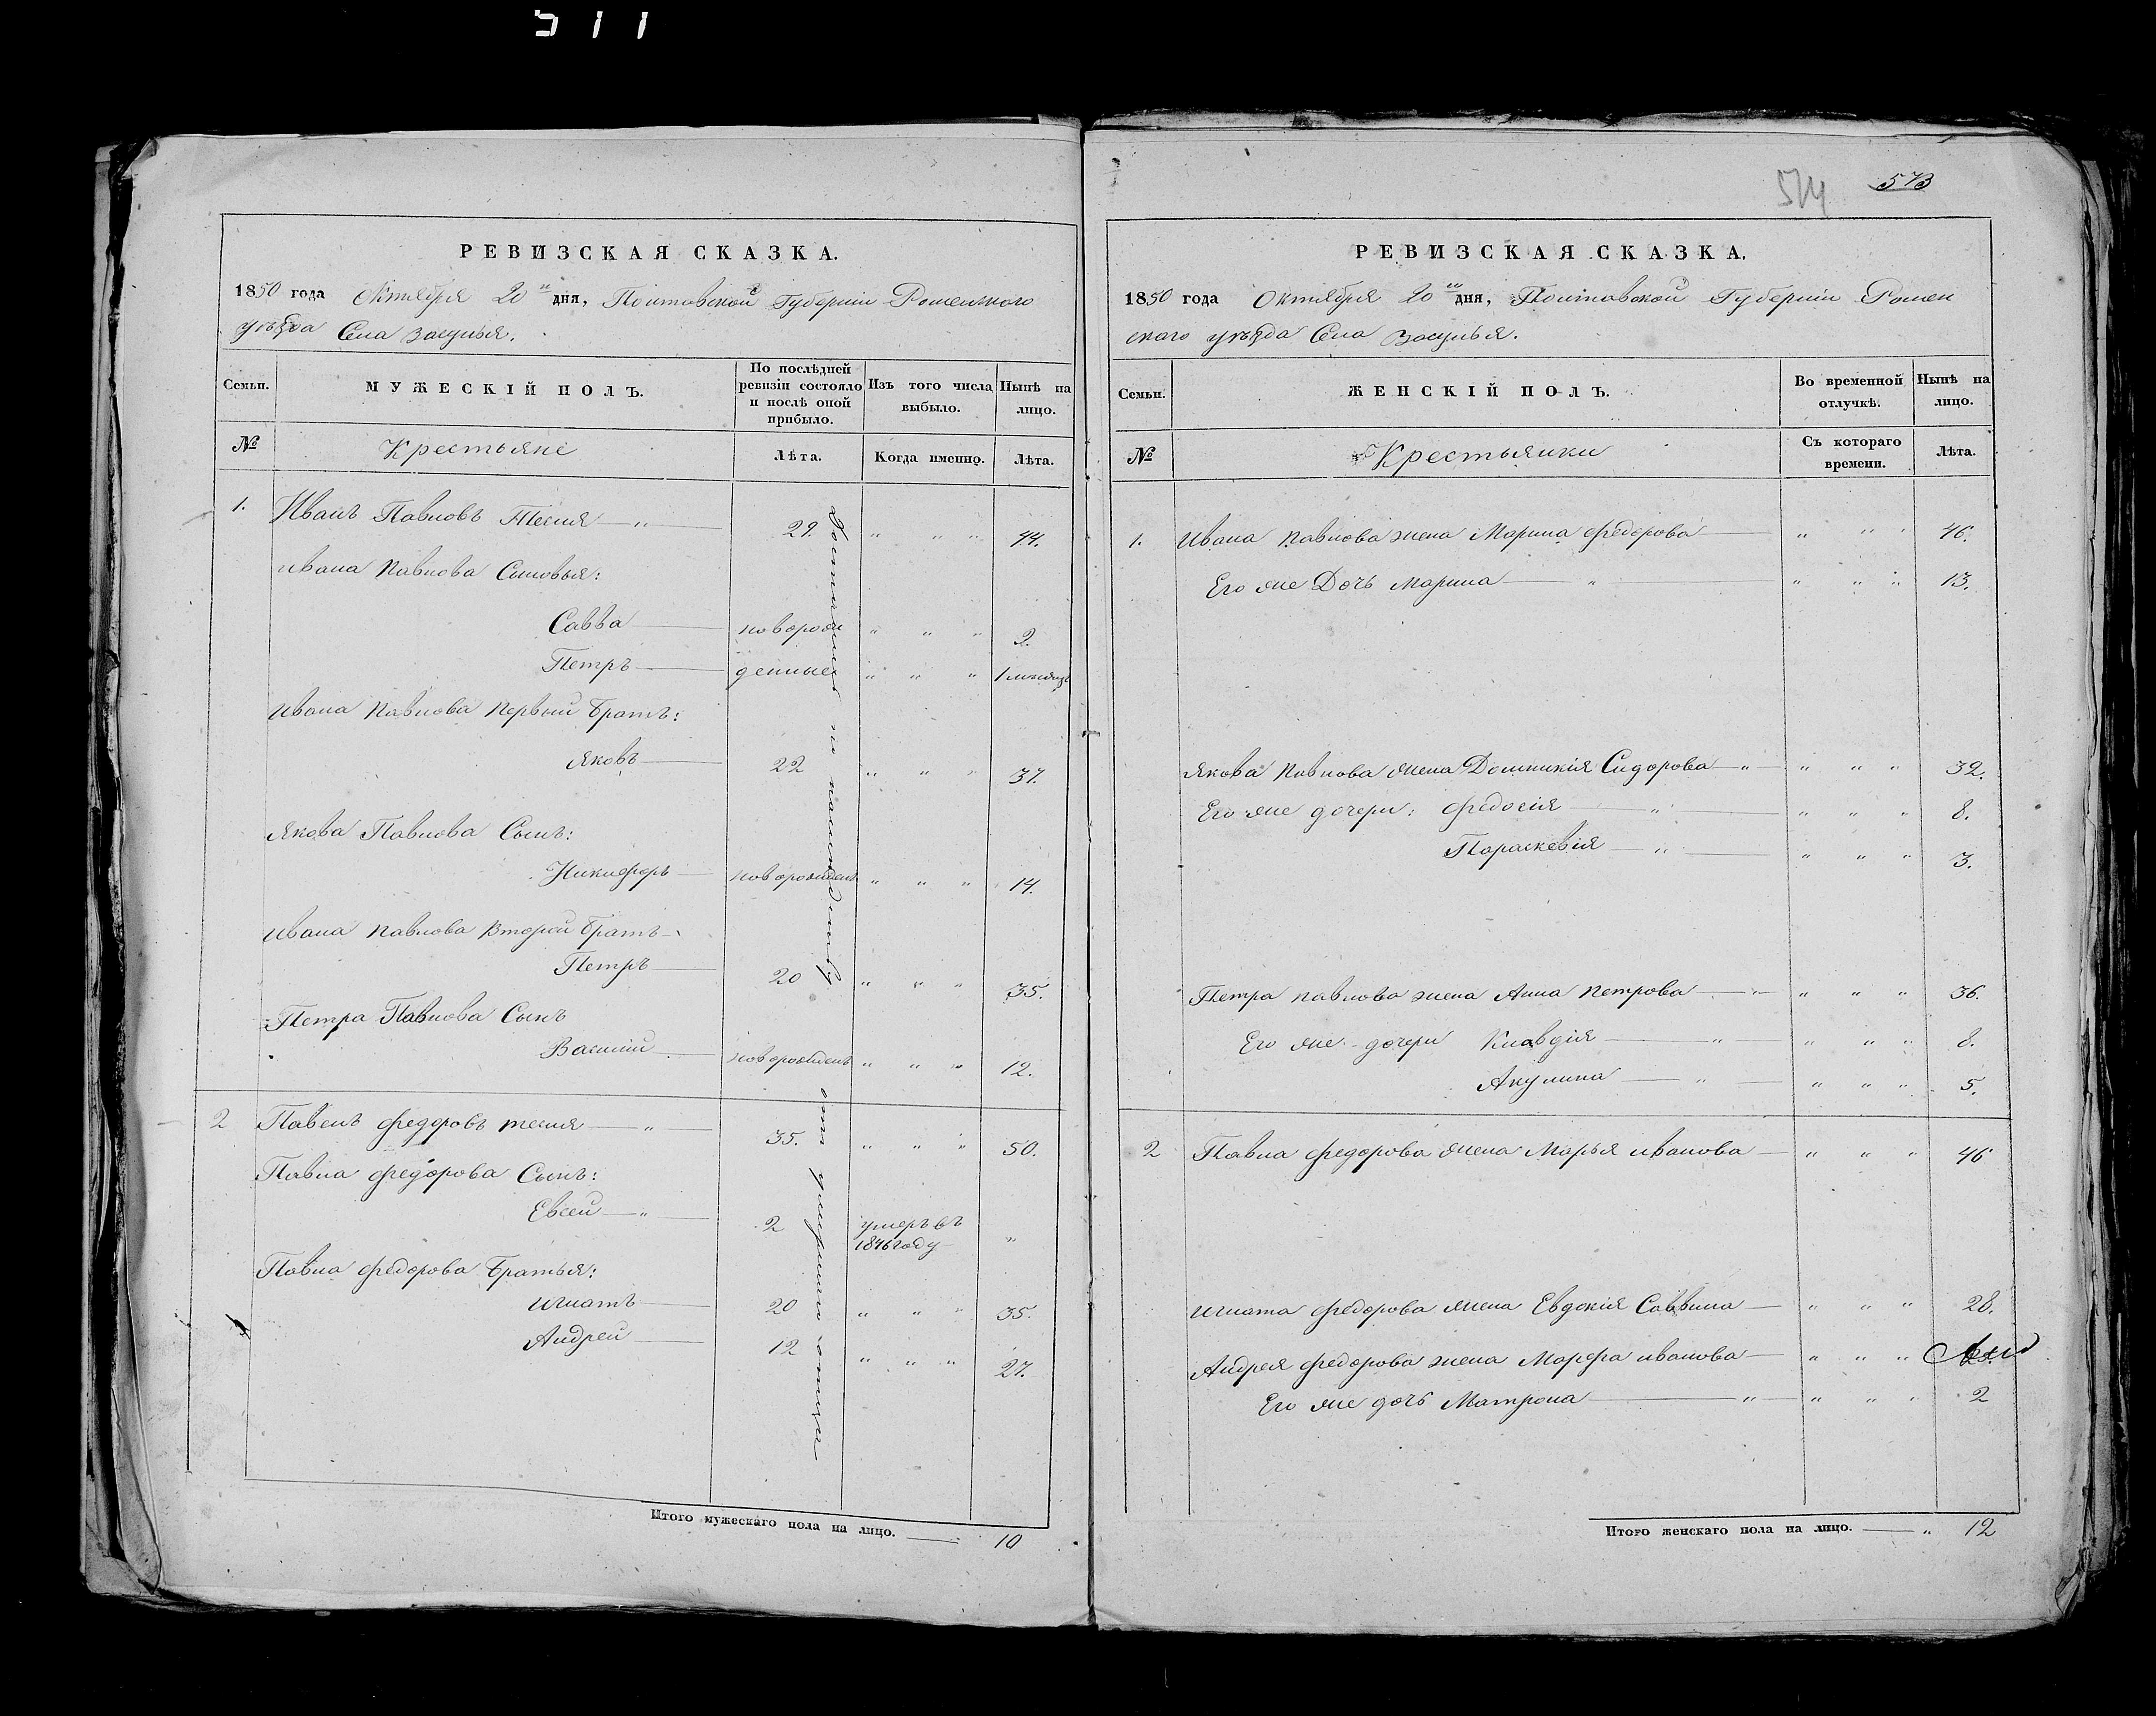 511
РЕВИЗСКАЯ СКАЗКА.
1850 года Октября 20го дня, Полтавской Губерніи Роменского
уѣзда Села Засулья.
Семьи. МУЖЕСКІЙ ПОЛЪ. По послѣдней ревизіи состояло и послѣ оной прибыло. Изъ того числа выбыло. Нынѣ на лицо.
№ Крестьяне Лѣта. Когда именно. Лѣта.
1. Иванъ Павловъ Тесля — " — 29. " " " 44.
Ивана Павлова Сыновья:
Савва — новорож " " " 2.
Петръ — денные " " " 1 мѣсяцъ
Ивана Павлова Первый Братъ:
Яковъ — 22 " " " 37.
Якова Павлова Сынъ:
Никифоръ — новорожденъ " " " 14.
Ивана Павлова Второй Братъ
Петръ — 20 " " " 35.
Петра Павлова Сынъ
Василий новорожденъ " " " 12.
2 Павелъ Федоровъ тесля — " — 35. " " " 50.
Павла Федорова Сынъ:
Евсей — " — 2 умеръ въ "
1846 году
Павла Федорова Братья:
Игнатъ — 20 " " " 35.
Андрей — 12 " " " 27.
Итого мужескаго пола на лицо. — 10
Достались по наслѣдству
отца
574 573
РЕВИЗСКАЯ СКАЗКА.
1850 года Октября 20го дня, Полтавской Губерніи Ромен
ского уѣзда Села Засулья.
Семьи. ЖЕНСКІЙ ПОЛЪ. Во временной отлучкѣ. Нынѣ на лицо.
№ Крестьянки Съ котораго времени. Лѣта.
1. Ивана Павлова жена Марина Федорова — " " " 46.
Его же Дочь Марина — " " " " 13.
Якова Павлова жена Домникія Сидорова — " — " " " 32.
Его же дочери: Федосія — " — " " " 8.
Параскевія — " — " " " 3.
Петра павлова жена Анна Петрова — " — " " " 36.
Его же дочери Клавдія — " " " " 8.
Акулина — " " " " 5.
2 Павла Федорова жена Марья иванова — " " " 46
Игната Федорова жена Евдокія Саввина — " " " 28.
Андрея Федорова жена Марфа иванова — " " "
Его же дочь Матрона — " — " " " 2
Итого женскаго пола на лицо. — " 12